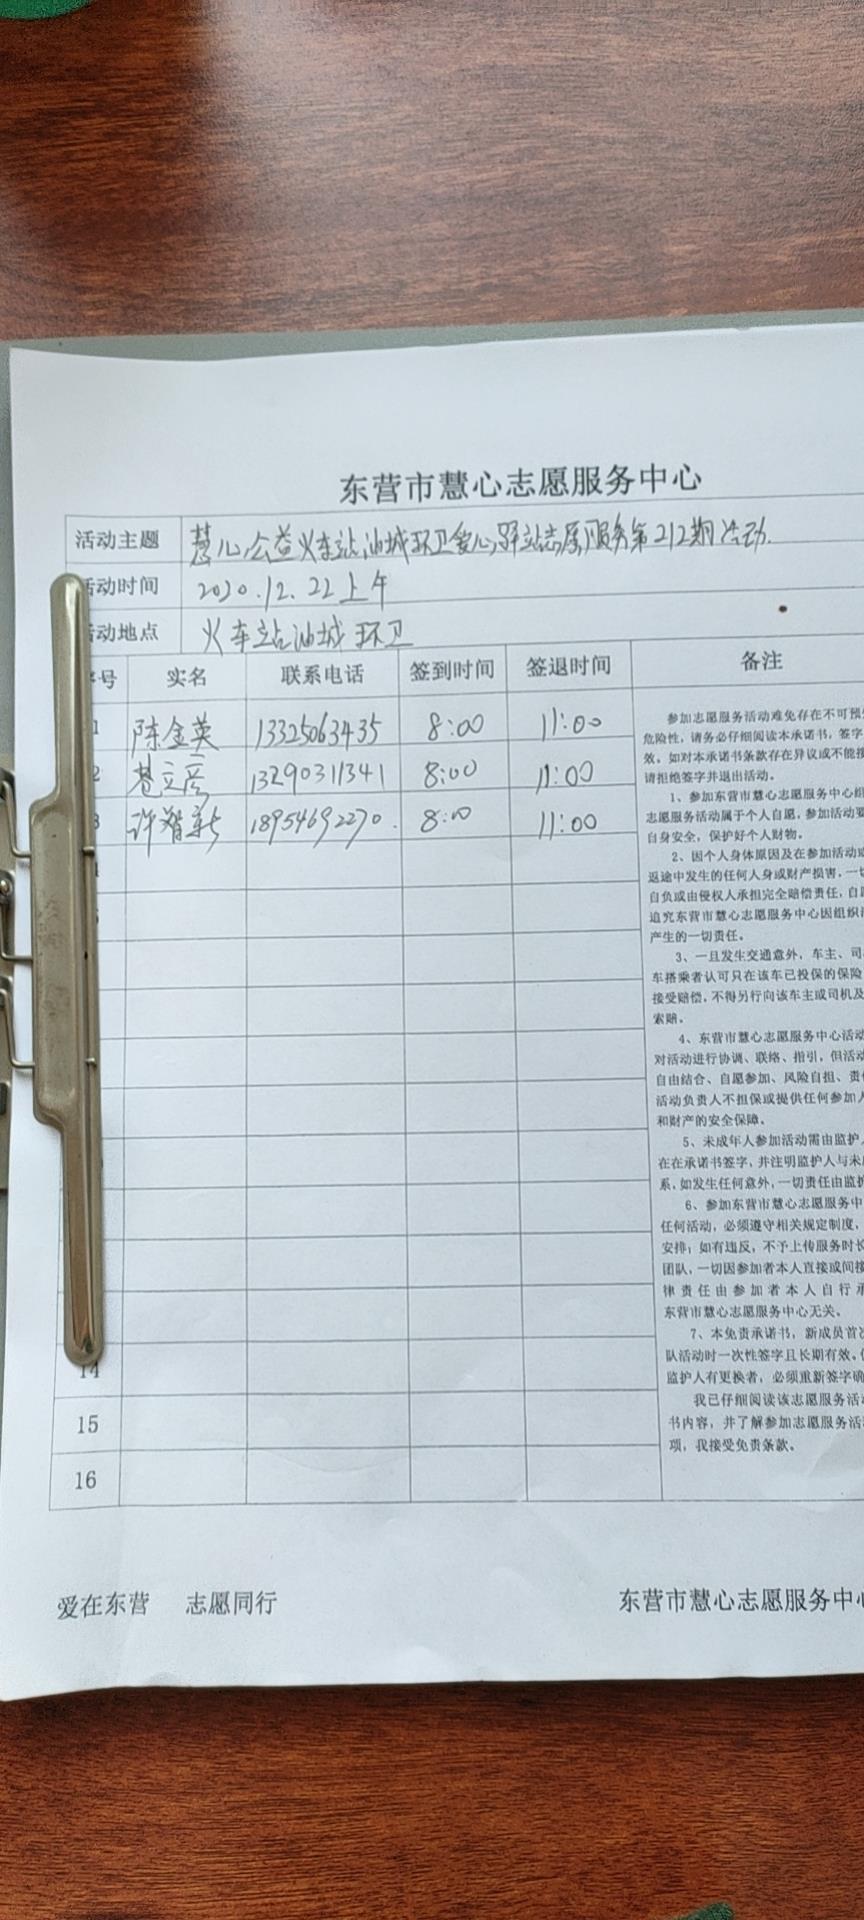 东营市慧心志愿服务中心
活动主题 慧心公益火车站油城环卫爱心驿站志愿服务第212期活动.
活动时间 2020.12.22上午
活动地点 火车站油城环卫
序号 实名 联系电话 签到时间 签退时间 备注
1 陈金英 13325063435 8:00 11:00
2 13290311341 8:00 11:00
3 许智新 18954692270. 8:00 11:00
14
15
16
参加志愿服务活动难免存在不可预
危险性，请务必仔细阅读本承诺书，签字
效。如对本承诺书条款存在异议或不能接
请拒绝签字并退出活动。
1、参加东营市慧心志愿服务中心组
志愿服务活动属于个人自愿，参加活动要
自身安全，保护好个人财物。
2、因个人身体原因及在参加活动或
返途中发生的任何人身或财产损害，一切
自负或由侵权人承担完全赔偿责任，自愿
追究东营市慧心志愿服务中心因组织活
产生的一切责任。
3、一旦发生交通意外，车主、司
车搭乘者认可只在该车已投保的保险
接受赔偿，不得另行向该车主或司机及
索赔。
4、东营市慧心志愿服务中心活动
对活动进行协调、联络、指引，但活动
自由结合、自愿参加、风险自担、责
活动负责人不担保或提供任何参加人
和财产的安全保障。
5、未成年人参加活动需由监护人
在在承诺书签字，并注明监护人与未成
系，如发生任何意外，一切责任由监护
6、参加东营市慧心志愿服务中
任何活动，必须遵守相关规定制度，
安排；如有违反，不予上传服务时长
团队，一切因参加者本人直接或间接
律责任由参加者本人自行承
东营市慧心志愿服务中心无关。
7、本免责承诺书，新成员首次
队活动时一次性签字且长期有效。
监护人有更换者，必须重新签字确
我已仔细阅读该志愿服务活动
书内容，并了解参加志愿服务活动
项，我接受免责条款。
爱在东营 志愿同行 东营市慧心志愿服务中心